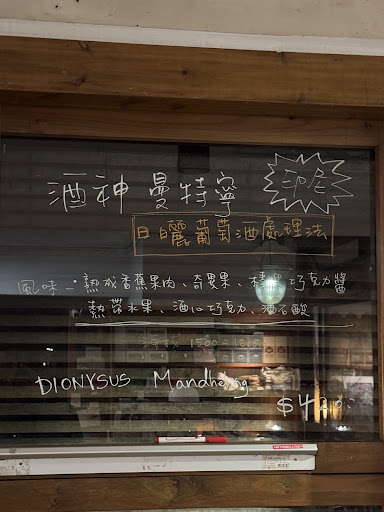 酒神 曼特寧
印尼
日曬葡萄酒處理法
風味－熟成香蕉果肉、奇異果、榛果巧克力醬
熱帶水果、酒心巧克力、酒石酸
海拔 1500-1600
DIONYSUS Mandheling